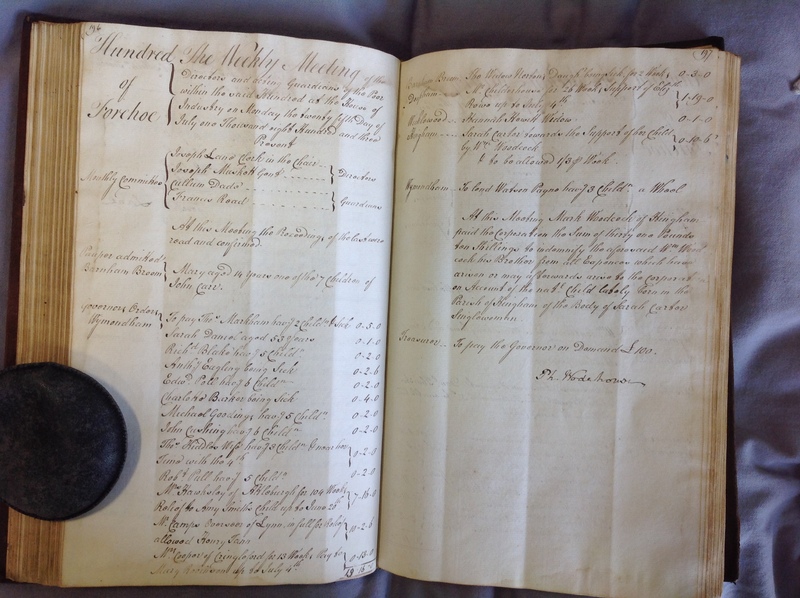 96
Hundred of Forehoe
The Weekly Meeting of the
Directors and acting Guardians of the Poor
within the said Hundred at the House of
Industry on Monday the twenty fifth Day of
July one Thousand eight Hundred and three
Present
Joseph Lane Clerk in the Chair
Joseph Maskett Gent
Directors
Monthly Committee
Cullum Dads
Francis Read
Guardians
At this Meeting the Proceedings of the last were
read and confirmed
Pauper admitted
Barnham Broom
Mary aged 14 Years one of the 7 Children of
John Carr
Governors Orders
Wymondham
To pay Thos Markham havg 2 Childn Sick 0-5-0
Sarah Daniel aged 53 Years 0-1-0
Richd Blake havg 5 Childn 0-2-0
Anthy Eagling being Sick 0-2-6
Edwd Poll havg 6 Childn 0-2-0
Charlotte Barker being Sick 0-4-0
Michael Goodings havg 5 Childn 0-2-0
John Cushing havg 6 Childn 0-2-0
Thos Wife havg 5 Childn
Time with the 4th 0-2-0
Robt Pull havg 5 Childn 0-2-0
Mr Hawksley of Attleburgh for 104 Weeks
Relief to Amy Smiths Child up to June 26th 7-16-0
Mr Camps Overseer of Lynn, in full for Relief
allowed Henry 10-2-6
Mrs Cooper of Cringleford for 13 Weeks
Mary up to July 4th 0-13-0
97
Barnham Broom The Widow Norton for 2 Weeks 0-3-0
Mr for 26 Weeks Support of
up to July 4th 1-19-0
Hannah Howlt Widow 0-1-0
Hingham Sarah Carter towards the Support of her Child
by Wm Woodcock 0-10-6
to be allowed 1/3 p Week
Wymondham To lend Watson Payne havg 3 Childn a Wheel
At this Meeting Mark Woodcock of Hingham
paid the Corporation the Sum of thirty one Pounds
ten Shillings to indemnify the aforesaid Wm Wood
cock his Brother from all Expences which have
arisen or may afterwards arise to the Corporatn
on Account of the natl Child lately born in the
Parish of Hingham of the Body of Sarah Carter
Singlewoman
Treasurer To pay the Governor on Demand £100.
Ph. Wodehouse